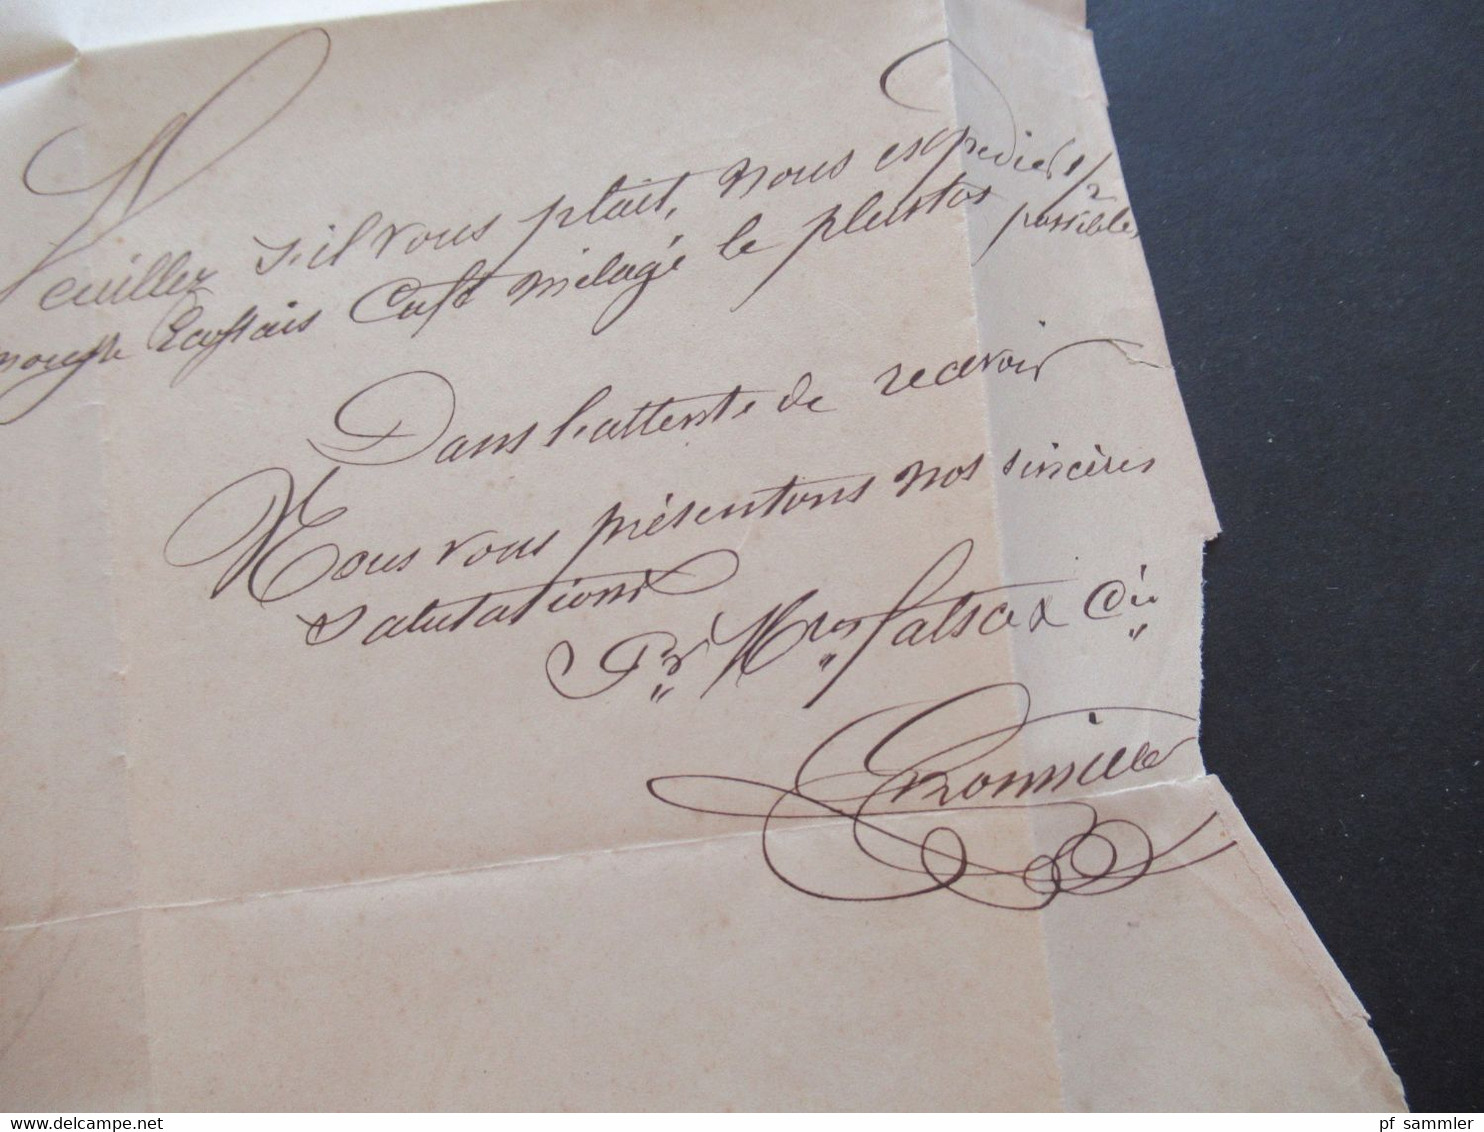 Veuillez s'il vous plait, nous expedier 1/2
Café mélagé le plustos possible,
Dans l'attente de recevoir
Nous vous présentons nos sincères
salutations
Pr Mrs & Cie
pf sammler